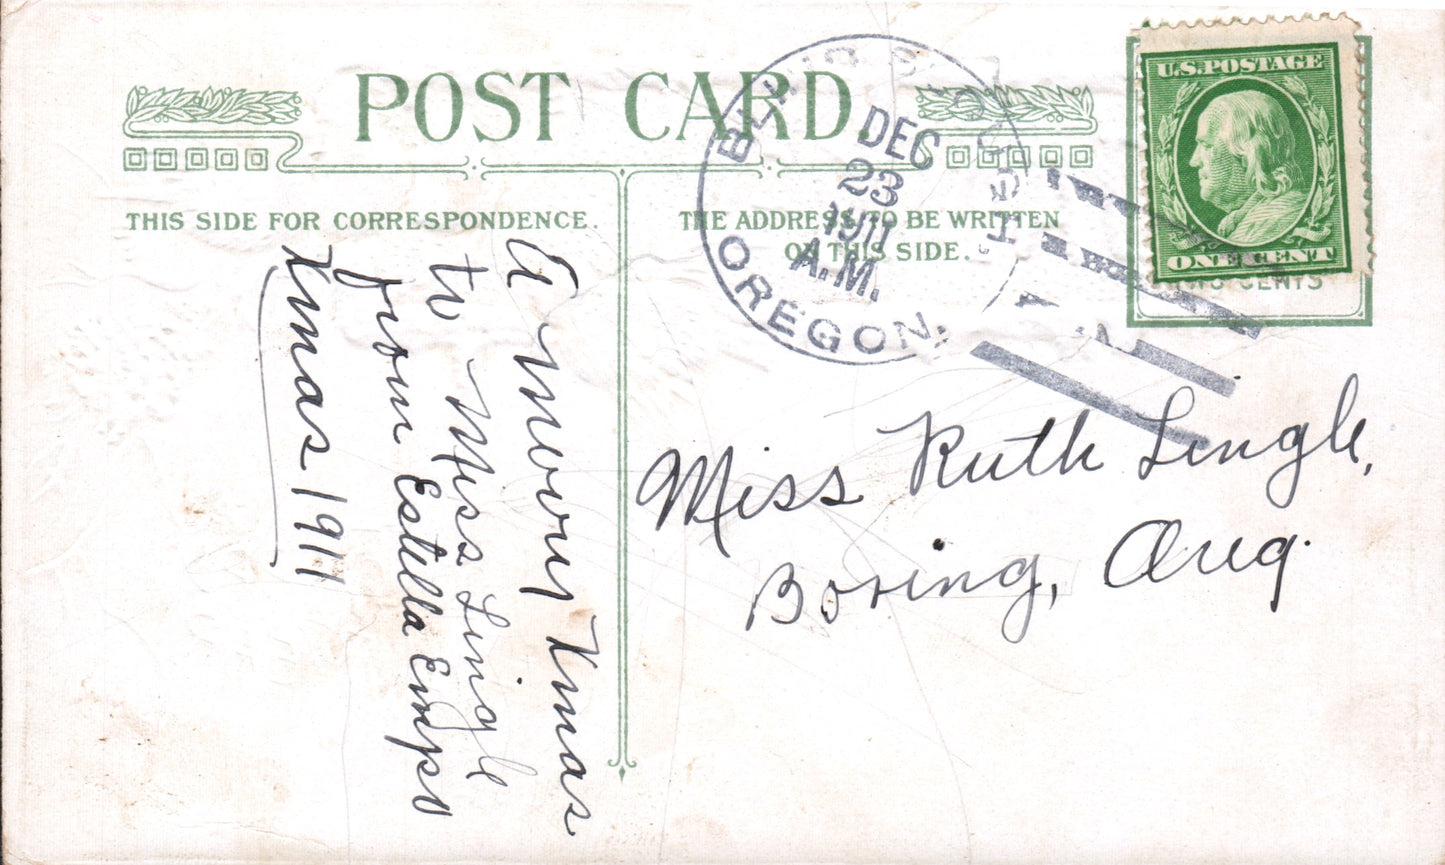 POST CARD.
THIS SIDE FOR CORRESPONDENCE.
THE ADDRESS TO BE WRITTEN
ON THIS SIDE.
DEC
23
1911
A.M.
OREGON.
U.S. POSTAGE
ONE CENT
CENTS
A Merry Xmas
to Miss Lingle
from Estella
Xmas 1911
Miss Ruth Lingle,
Boring, Oreg.